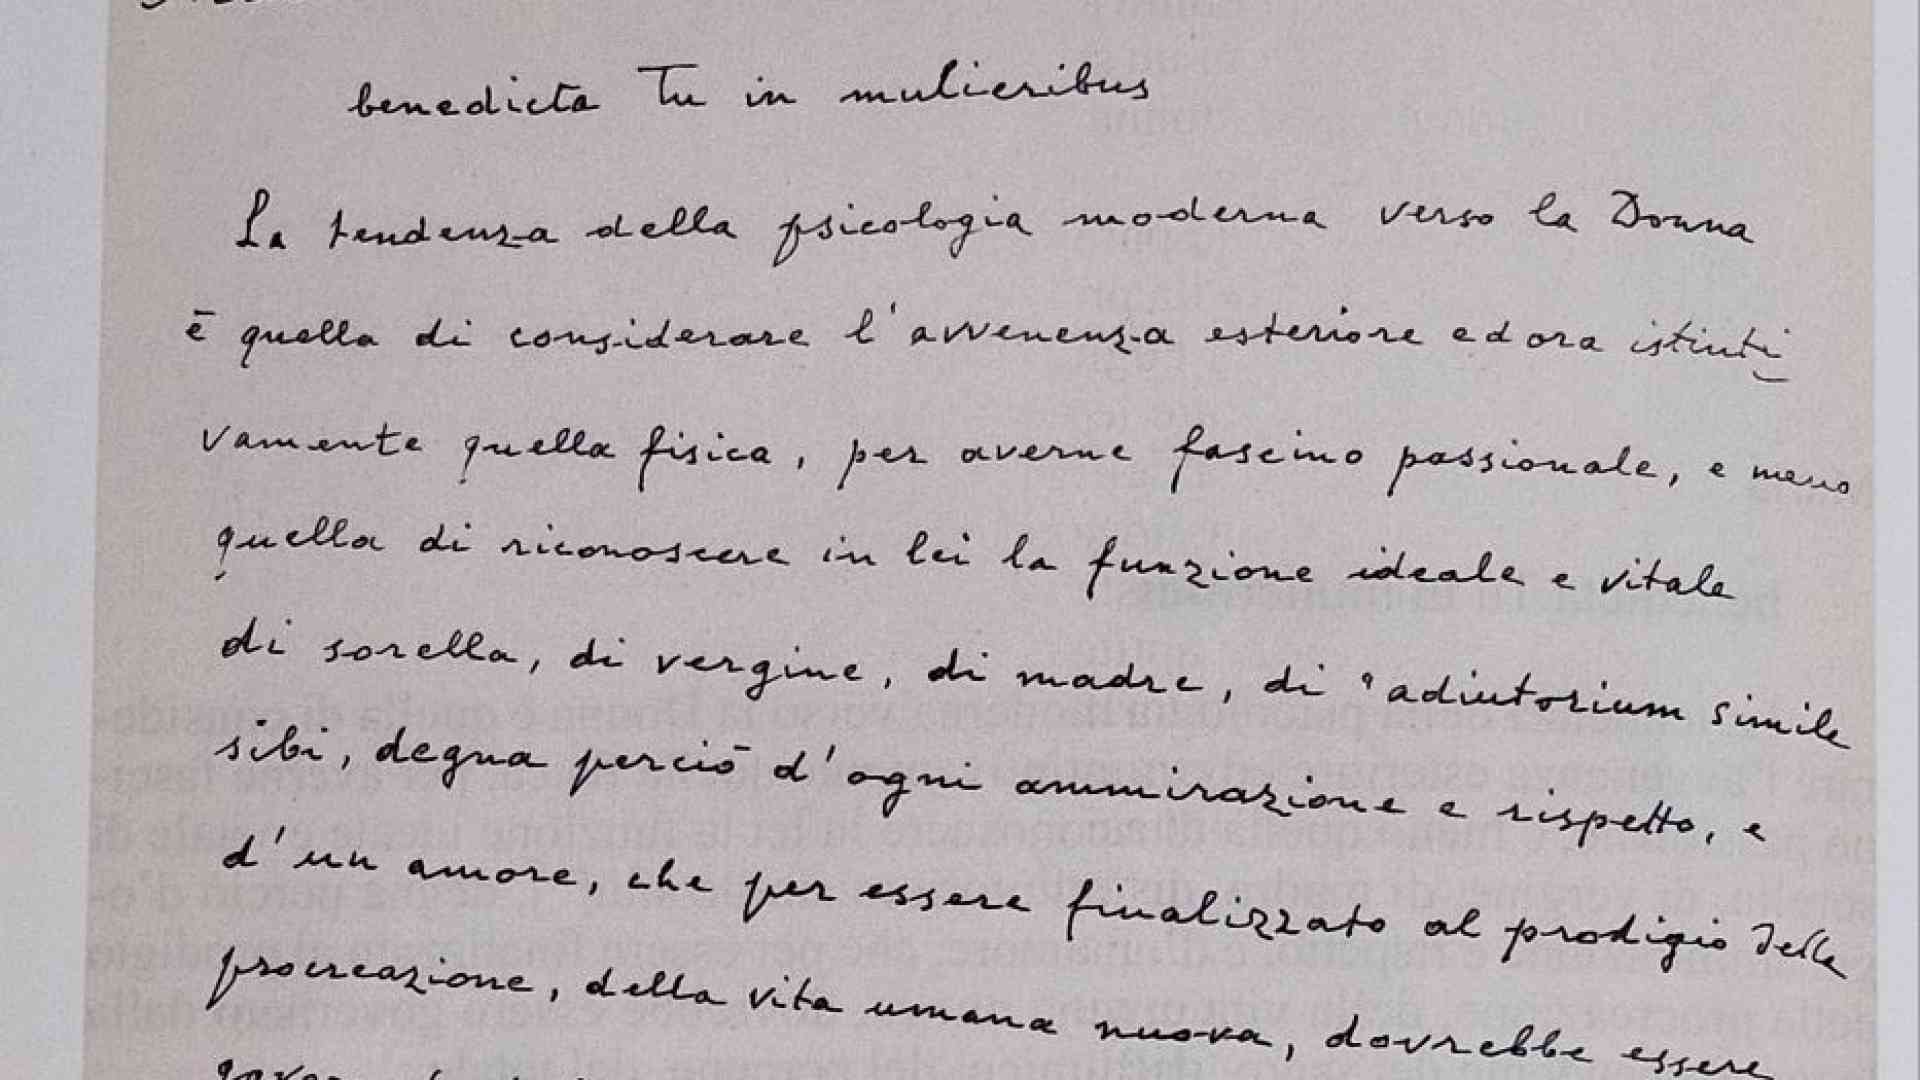 benedicta Tu in mulieribus
La tendenza della psicologia moderna verso la Donna
è quella di considerare l'avvenenza esteriore ed ora istinti
vamente quella fisica, per averne fascino passionale, e meno
quella di riconoscere in lei la funzione ideale e vitale
di sorella, di vergine, di madre, di "adiutorium simile
sibi, degna perciò d'ogni ammirazione e rispetto, e
d'un amore, che per essere finalizzato al prodigio della
procreazione, della vita umana nuova, dovrebbe essere